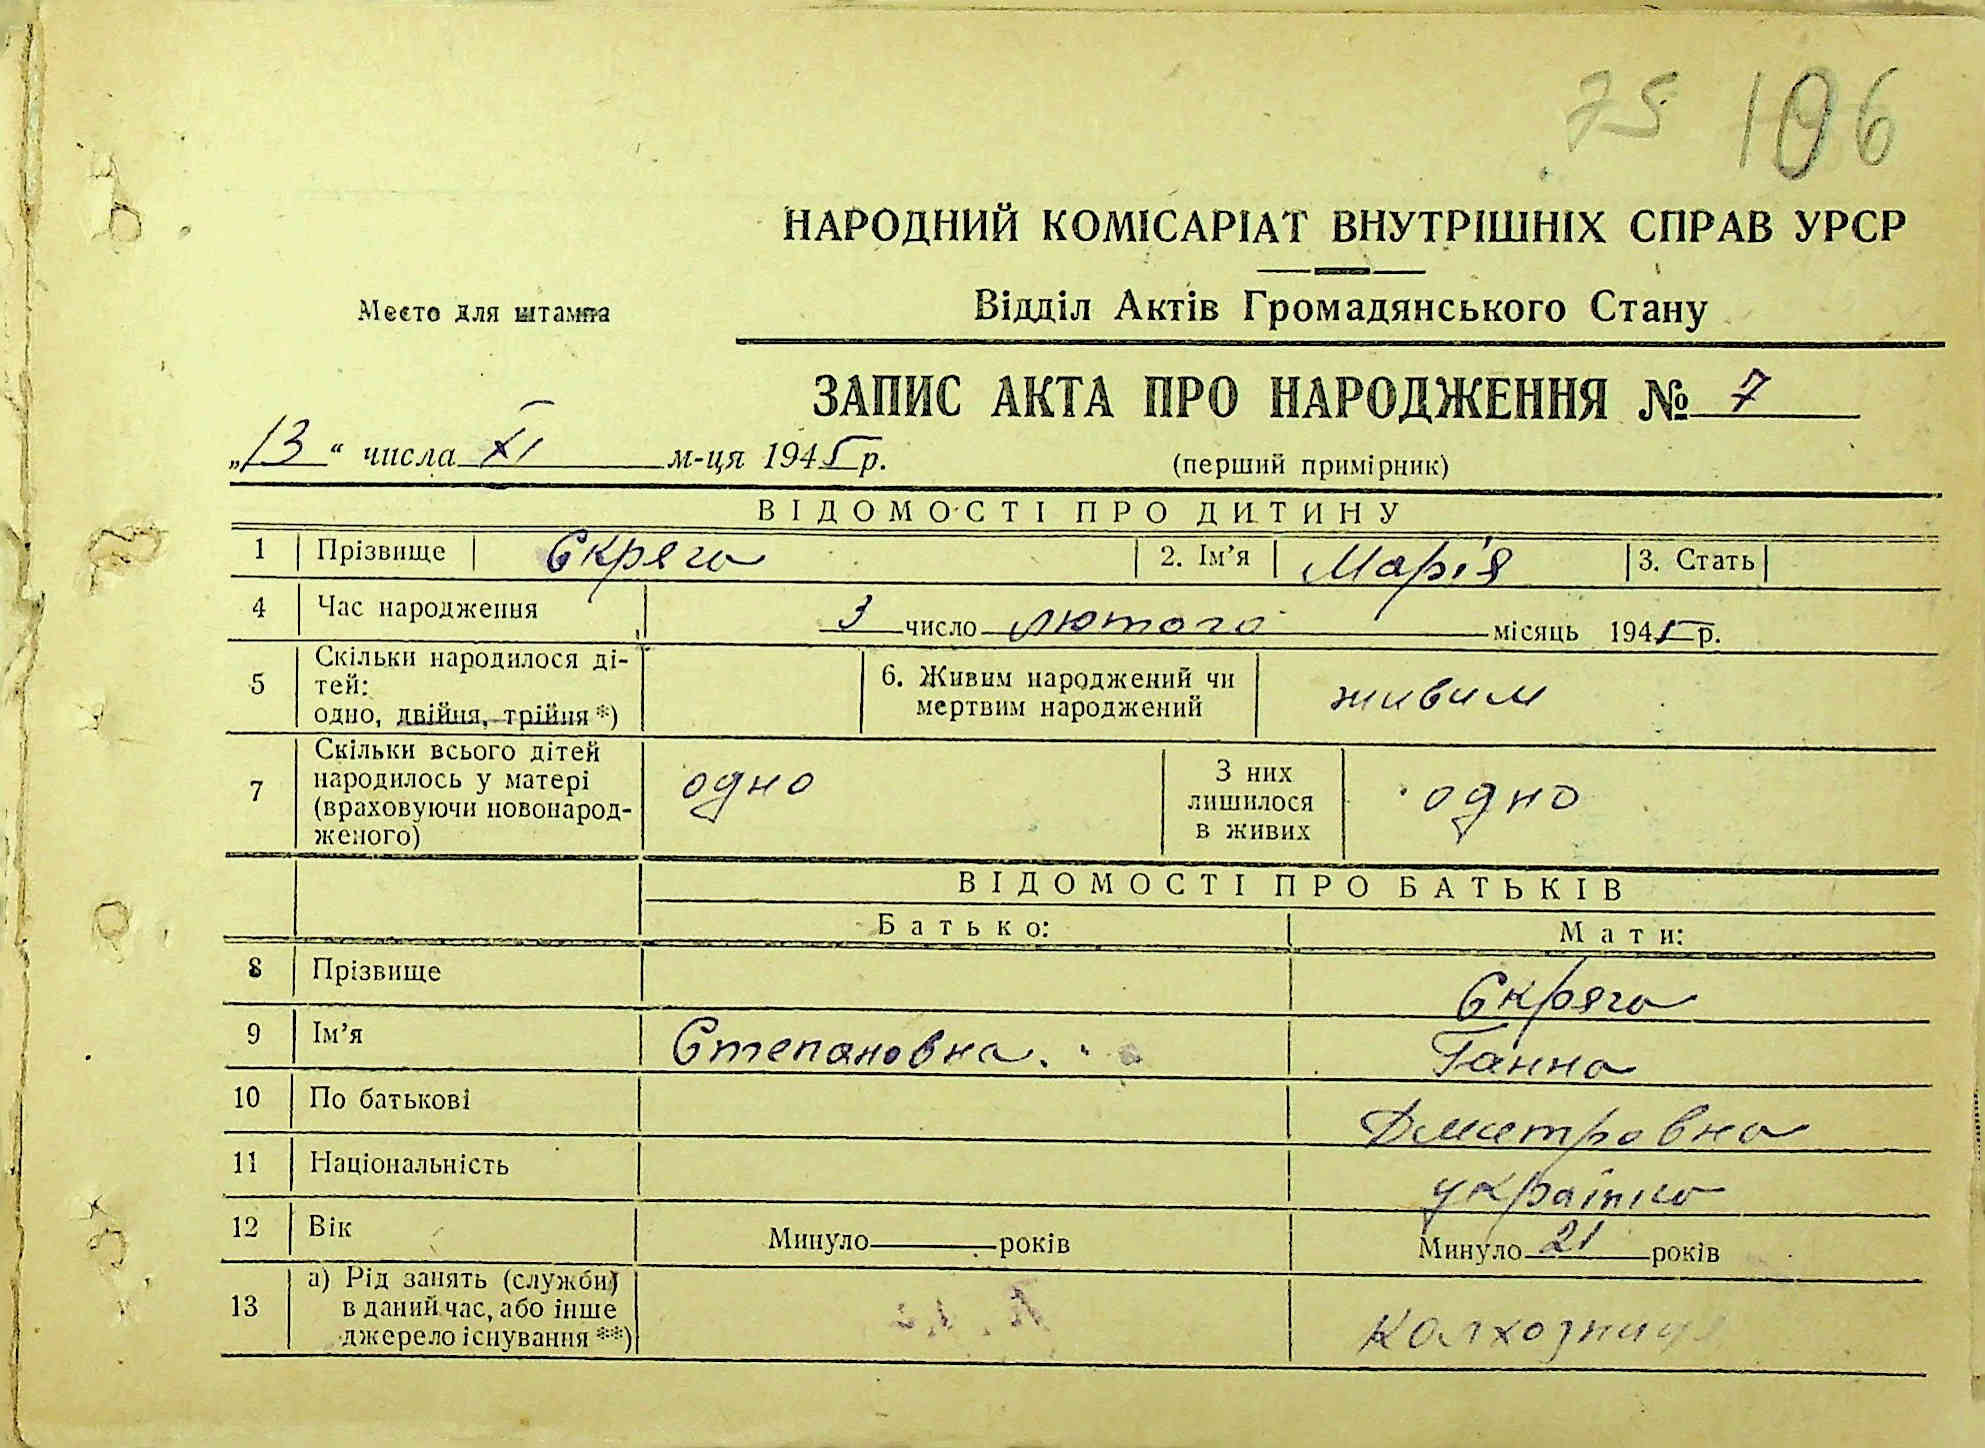 75 106
НАРОДНИЙ КОМІСАРІАТ ВНУТРІШНІХ СПРАВ УРСР
Место для штампа
Відділ Актів Громадянського Стану
ЗАПИС АКТА ПРО НАРОДЖЕННЯ № 7
„13“ числа XI м-ця 1945 р.
(перший примірник)
ВІДОМОСТІ ПРО ДИТИНУ
1 Прізвище Скряга 2. Ім’я Марія 3. Стать
4 Час народження 3 число лютого місяць 1945 р.
5 Скільки народилося ді-
тей:
одно, двійня, трійня *)
6. Живим народжений чи
мертвим народжений
живим
7 Скільки всього дітей
народилось у матері
(враховуючи новонарод-
женого)
одно
З них
лишилося
в живих
одно
ВІДОМОСТІ ПРО БАТЬКІВ
Батько: Мати:
8 Прізвище Скряга
9 Ім’я Степановна. Ганна
10 По батькові Дмитровна
11 Національність українка
12 Вік Минуло років Минуло 21 років
13 а) Рід занять (служби)
в даний час, або інше
джерело існування **)
колхозниця